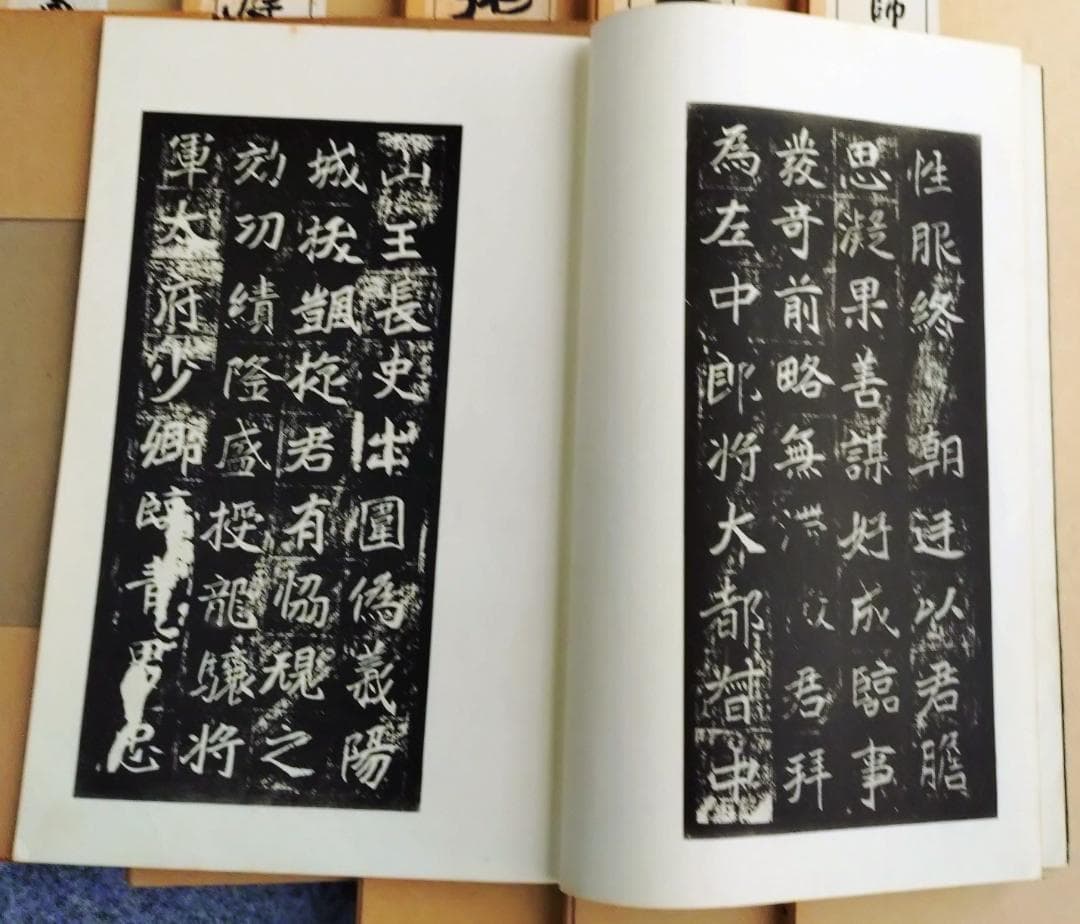 師
性服終朝迋以君膽
思凝果善謀好成臨事
發奇前略無滯君拜
為左中郎將大都督中
山王長史出圍偽義陽
城拔凱旋君有協規之
効功績隆盛授龍驤將
軍太府少卿臨青男忠